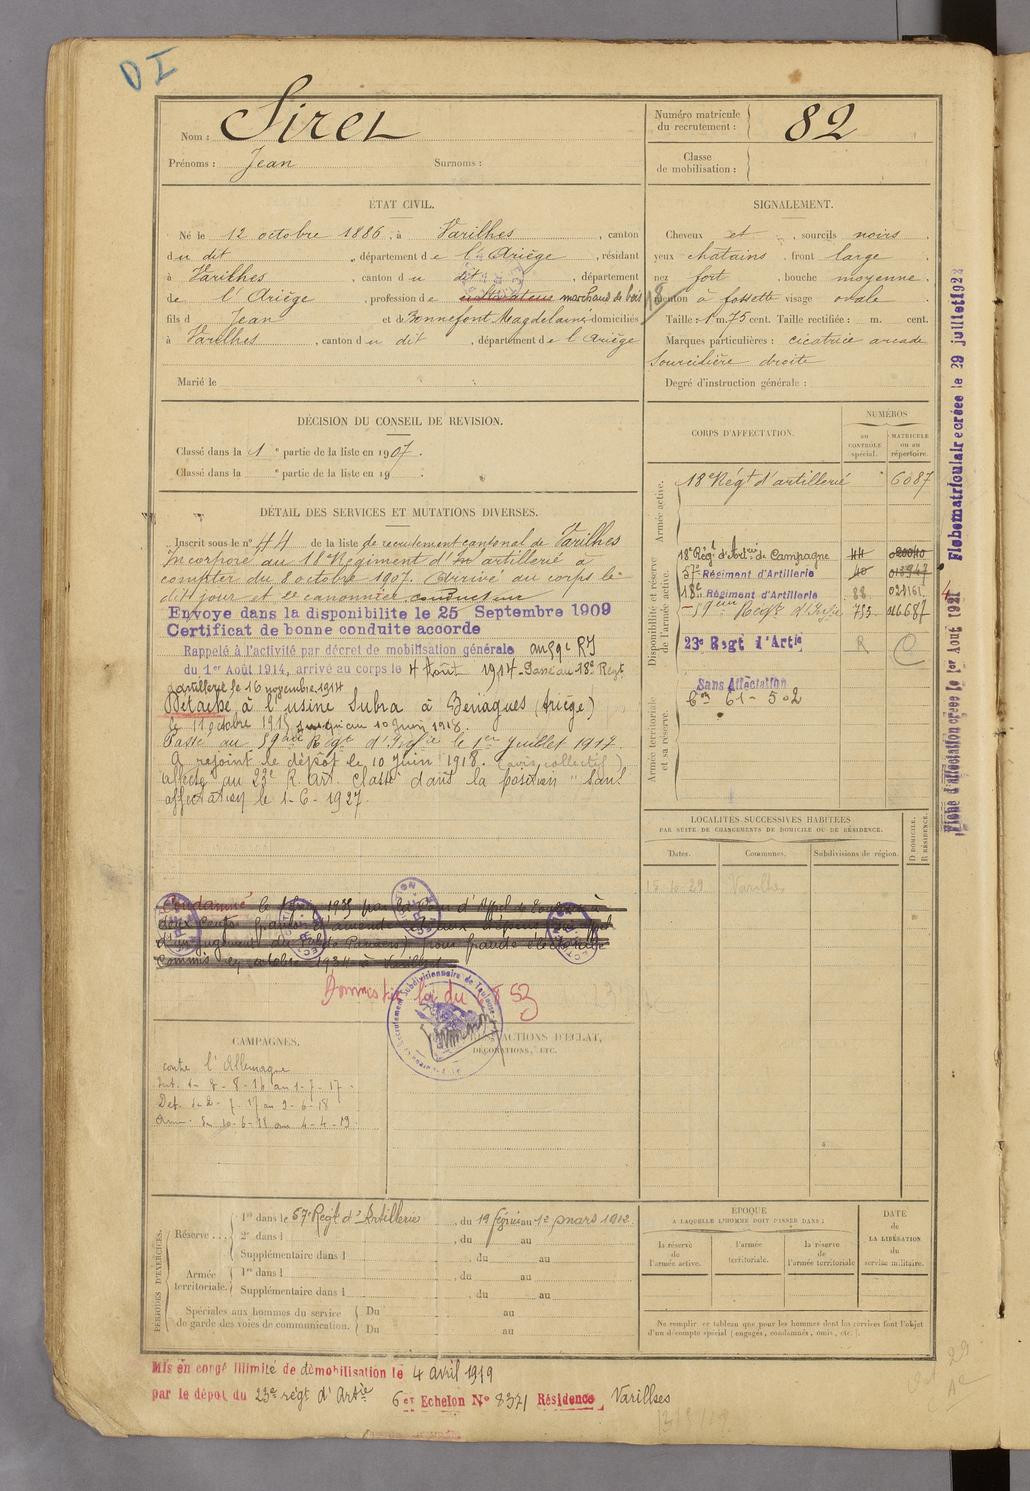 DI
Nom : Sirez
Prénoms : Jean Surnoms :
Numéro matricule du recrutement : 82
Classe de mobilisation :
ÉTAT CIVIL.
Né le 12 octobre 1886, à Varilhes, canton
du dit, département de l'Ariège, résidant
à Varilhes, canton du dit, département
de l'Ariège, profession de cultivateur marchand de bois
fils de Jean et de Bonnefont Magdelaine domiciliés
à Varilhes, canton du dit, département de l'Ariège
Marié le
SIGNALEMENT.
Cheveux et sourcils noirs
yeux chatains front large
nez fort bouche moyenne
menton à fossette visage ovale
Taille : 1 m. 75 cent. Taille rectifiée : m. cent.
Marques particulières : cicatrice arcade
sourcilière droite
Degré d'instruction générale :
DÉCISION DU CONSEIL DE REVISION.
Classé dans la 1e partie de la liste en 1907.
Classé dans la e partie de la liste en 19
DÉTAIL DES SERVICES ET MUTATIONS DIVERSES.
Inscrit sous le n° 44 de la liste de recrutement cantonal de Varilhes
Incorporé au 18e Régiment d'artillerie à
compter du 8 octobre 1907. Arrivé au corps le
dit jour et 2e canonnier conducteur
Envoye dans la disponibilite le 25 Septembre 1909
Certificat de bonne conduite accorde
Rappelé à l'activité par décret de mobilisation générale au 59e RI
du 1er Août 1914, arrivé au corps le 4 Août 1914. Passé au 18e Regt
artillerie le 16 novembre 1914
Détaché à l'usine Subra à Benagues (Ariège)
le 11 octobre 1915 jusqu'au 10 Juin 1918.
Passé au 59e Régt d'Infie le 1er Juillet 1917.
A rejoint le dépôt le 10 Juin 1918. (avis collectif)
affecté au 23e R. Art. Classé dans la position "sans
affectation le 1-6-1927.
Condamné le 1935 par la Cour d'Appel de Toulouse à
deux cents francs d'amende
d'un jugement du pour fraude électorale
commis en octobre 1934 à Varilhes
Amnistié loi du 53
Recrutement Subdivisionnaire de Toulouse
CORPS D'AFFECTATION.
NUMÉROS
au CONTRÔLE spécial.
MATRICULE ou au répertoire.
Armée active.
18e Régt d'artillerie 6087
Disponibilité et réserve de l'armée active.
18e Régt d'Artrie de Campagne 44 020040
57e Régiment d'Artillerie 40 013947
18e Régiment d'Artillerie 88 021161
59eme Régt d'Infie 753 016687
23e Regt d'Artie R
Armée territoriale et sa réserve.
Sans Affectation
Cm 61-502
LOCALITÉS SUCCESSIVES HABITÉES
PAR SUITE DE CHANGEMENTS DE DOMICILE OU DE RÉSIDENCE.
Dates. Communes. Subdivisions de région. D DOMICILE. R RÉSIDENCE.
18-10-29 Varilhes
Fiche matriculaire créee le 29 juillet 1922
Fiche d'affectation créée le 1er Aout 1921
CAMPAGNES.
contre l'Allemagne
Int. du 4-8-14 au 1-7-17
Det. du 2-7-17 au 9-6-18
Int. du 10-6-18 au 4-4-19
ACTIONS D'ÉCLAT,
DÉCORATIONS, ETC.
PÉRIODES D'EXERCICES.
Réserve ... 1re dans le 57e Régt d'Artillerie, du 19 février au 12 mars 1912.
2e dans l , du au
Supplémentaire dans l , du au
Armée territoriale. 1re dans l , du au
Supplémentaire dans l , du au
Spéciales aux hommes du service de garde des voies de communication. Du au
Du au
ÉPOQUE
A LAQUELLE L'HOMME DOIT PASSER DANS :
la réserve de l'armée active. l'armée territoriale. la réserve de l'armée territoriale
DATE de LA LIBÉRATION du service militaire.
Ne remplir ce tableau que pour les hommes dont les services font l'objet
d'un décompte spécial (engagés, condamnés, omis, etc.).
Mis en congé illimité de démobilisation le 4 Avril 1919
par le dépot du 23e régt d'Artie 6e Echelon N° 8371 Résidence Varilhes